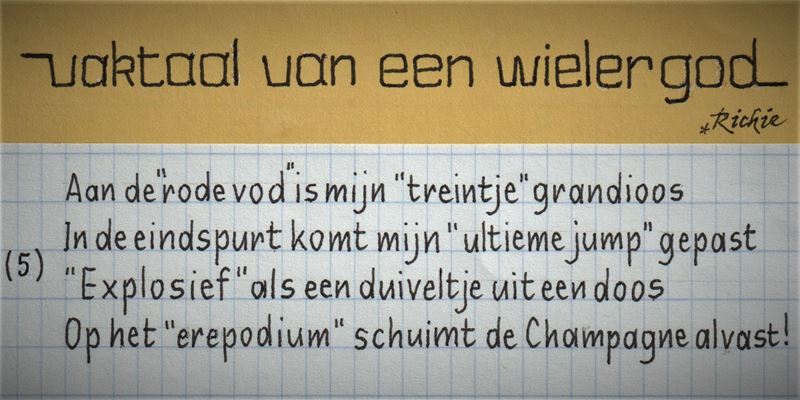 vaktaal van een wielergod
*Richie
Aan de "rode vod" is mijn "treintje" grandioos
In de eindspurt komt mijn "ultieme jump" gepast
(5)
"Explosief" als een duiveltje uit een doos
Op het "erepodium" schuimt de Champagne alvast!